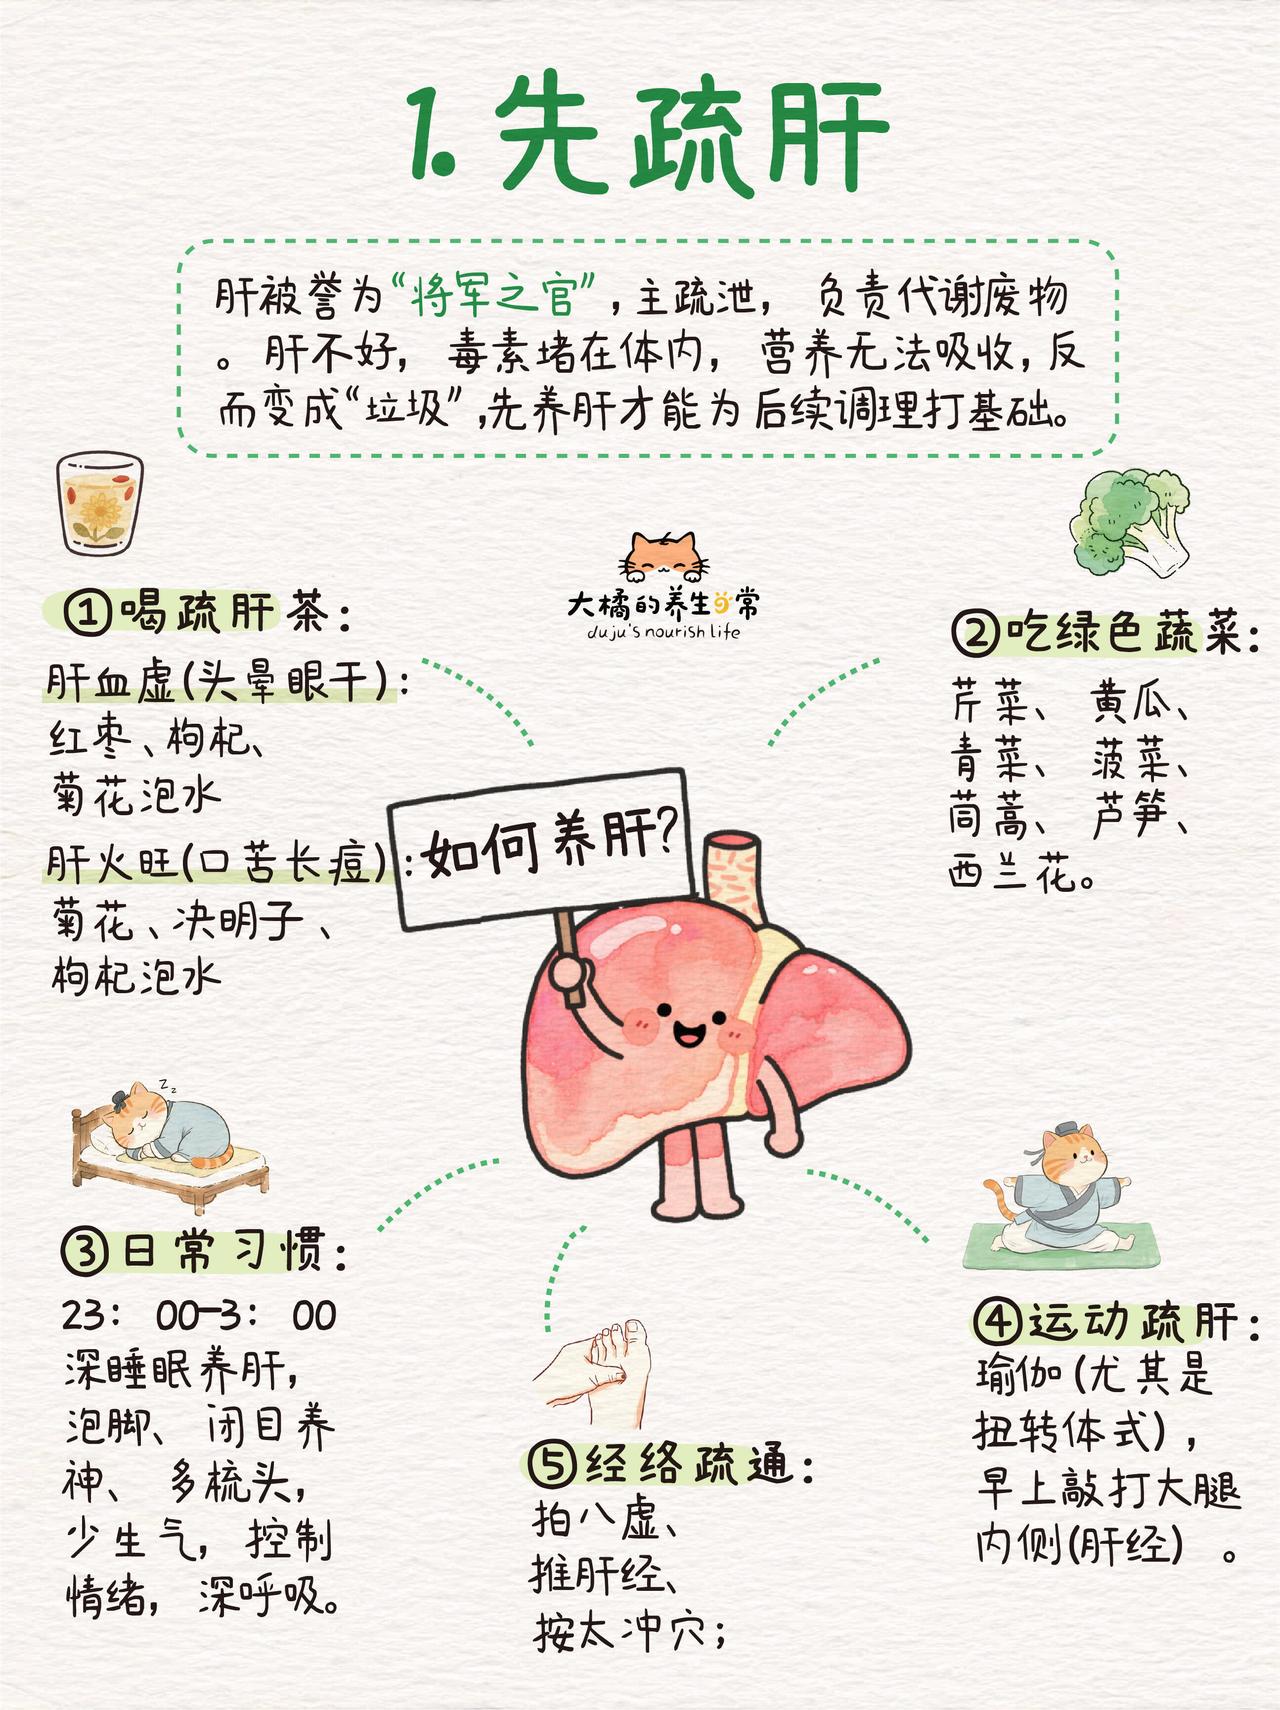 1.先疏肝
肝被誉为“将军之官”,主疏泄, 负责代谢废物
。肝不好, 毒素堵在体内, 营养无法吸收,反
而变成“垃圾”,先养肝才能为后续调理打基础。
大橘的养生日常
duju's nourish life
①喝疏肝茶:
肝血虚(头晕眼干):
红枣、枸杞、
菊花泡水
肝火旺(口苦长痘):
菊花、决明子、
枸杞泡水
②吃绿色蔬菜:
芹菜、 黄瓜、
青菜、 菠菜、
茼蒿、 芦笋、
西兰花。
如何养肝?
zz
③日常习惯:
23: 00-3: 00
深睡眠养肝,
泡脚、 闭目养
神、 多梳头,
少生气, 控制
情绪, 深呼吸。
④运动疏肝:
瑜伽(尤其是
扭转体式),
早上敲打大腿
内侧(肝经) 。
⑤经络疏通:
拍八虚、
推肝经、
按太冲穴;